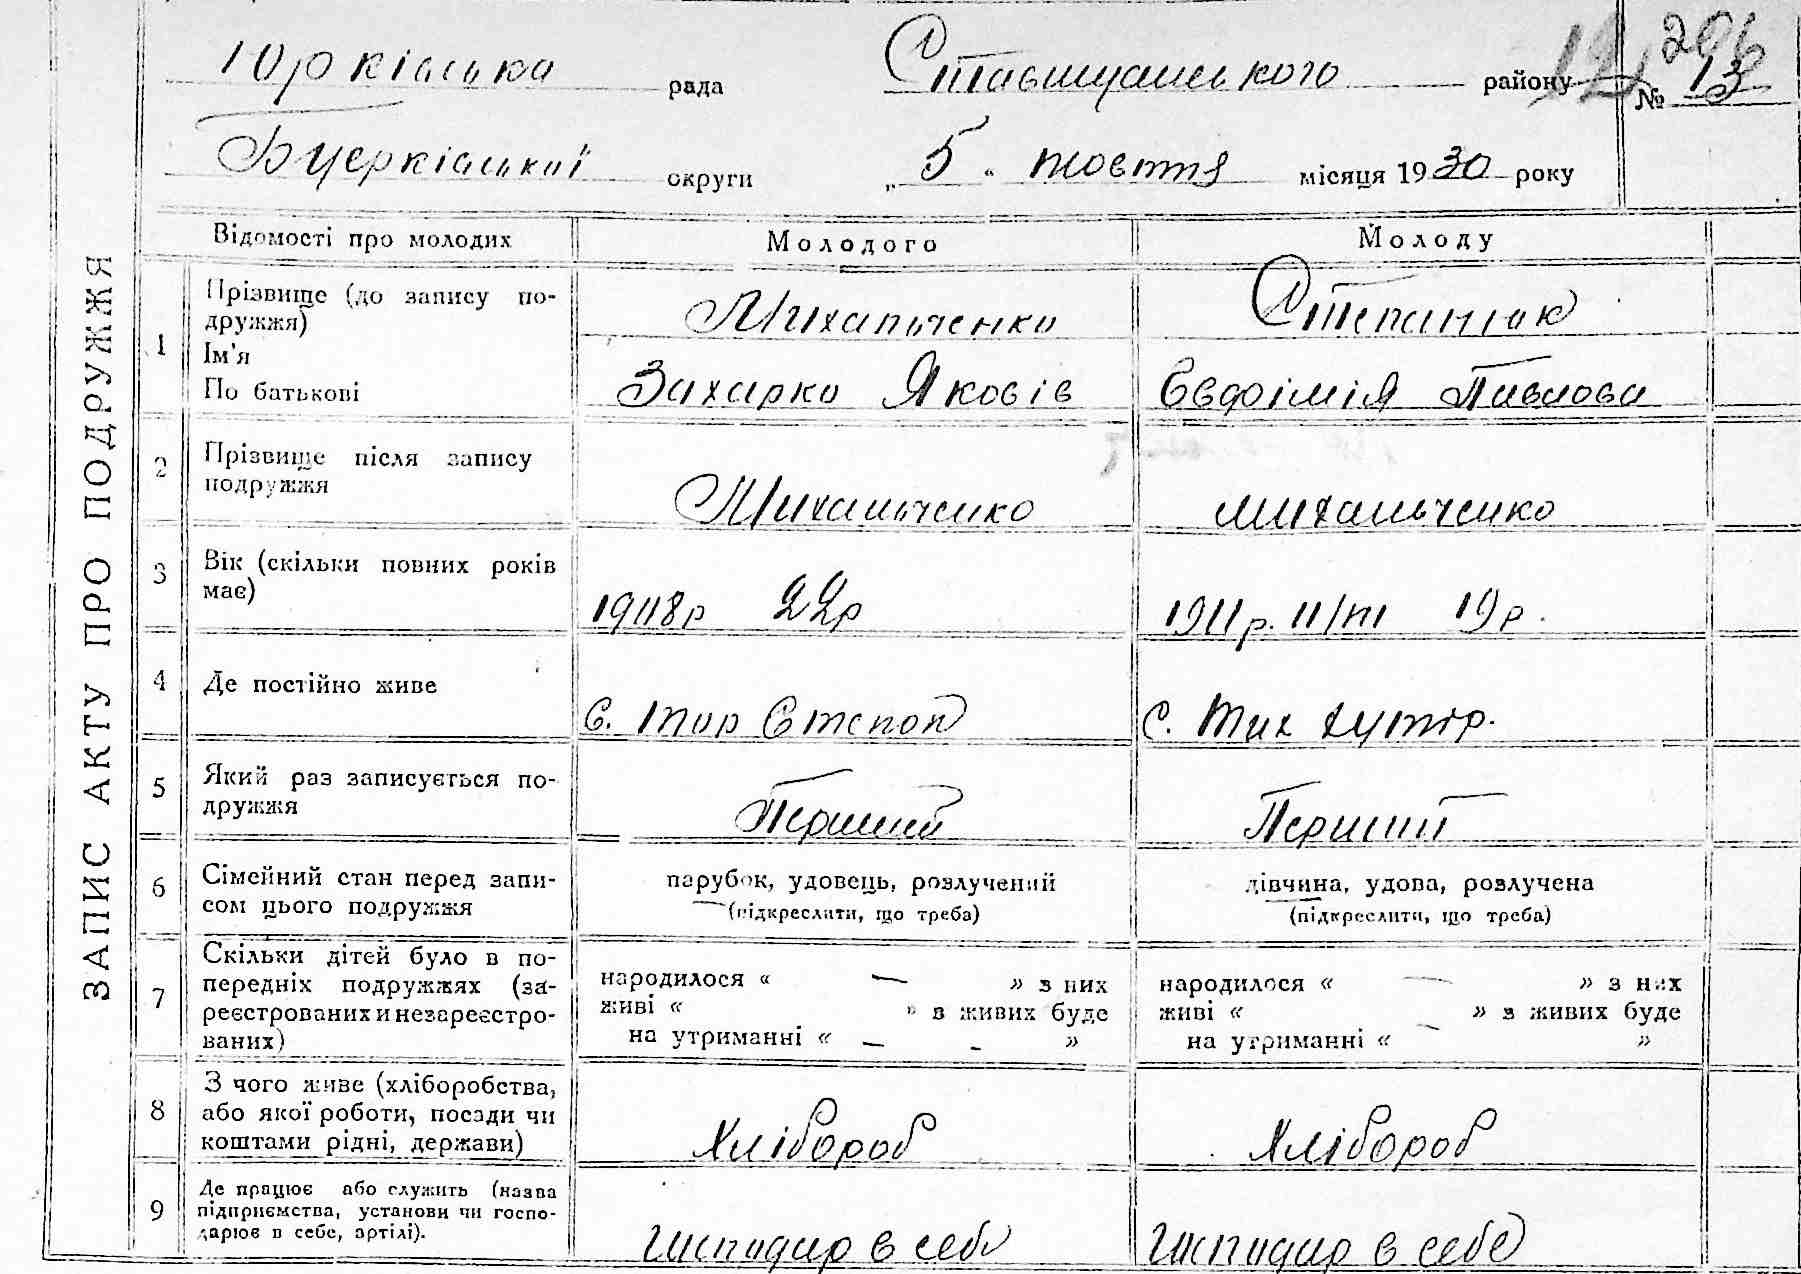 Юрківська рада Ставищанського району № 13
12 206
Білоцерківської округи „ 5 “ жовтня місяця 1930 року
ЗАПИС АКТУ ПРО ПОДРУЖЖЯ
Відомості про молодих Молодого Молоду
1 Прізвище (до запису по-
дружжя)
Ім'я
По батькові
Михальченко Степанюк
Захарко Яковів Євфімія Павлова
2 Прізвище після запису
подружжя
Михальченко михальченко
3 Вік (скільки повних років
має)
22р 1911р. 19р.
4 Де постійно живе
с. с. Тих хутір.
5 Який раз записується по-
дружжя
Перший Перший
6 Сімейний стан перед запи-
сом цього подружжя
парубок, удовець, розлучений дівчина, удова, розлучена
(підкреслити, що треба) (підкреслити, що треба)
7 Скільки дітей було в по-
передніх подружжях (за-
реєстрованих и незареєстро-
ваних)
народилося « — » з них народилося « — » з них
живі « » з живих буде живі « » з живих буде
на утриманні « — - » на утриманні « — »
8 З чого живе (хліборобства,
або якої роботи, посади чи
коштами рідні, держави)
Хлібороб Хлібороб
9 Де працює або служить (назва
підприємства, установи чи госпо-
дарює в себе, артілі).
господар в себе господар в себе